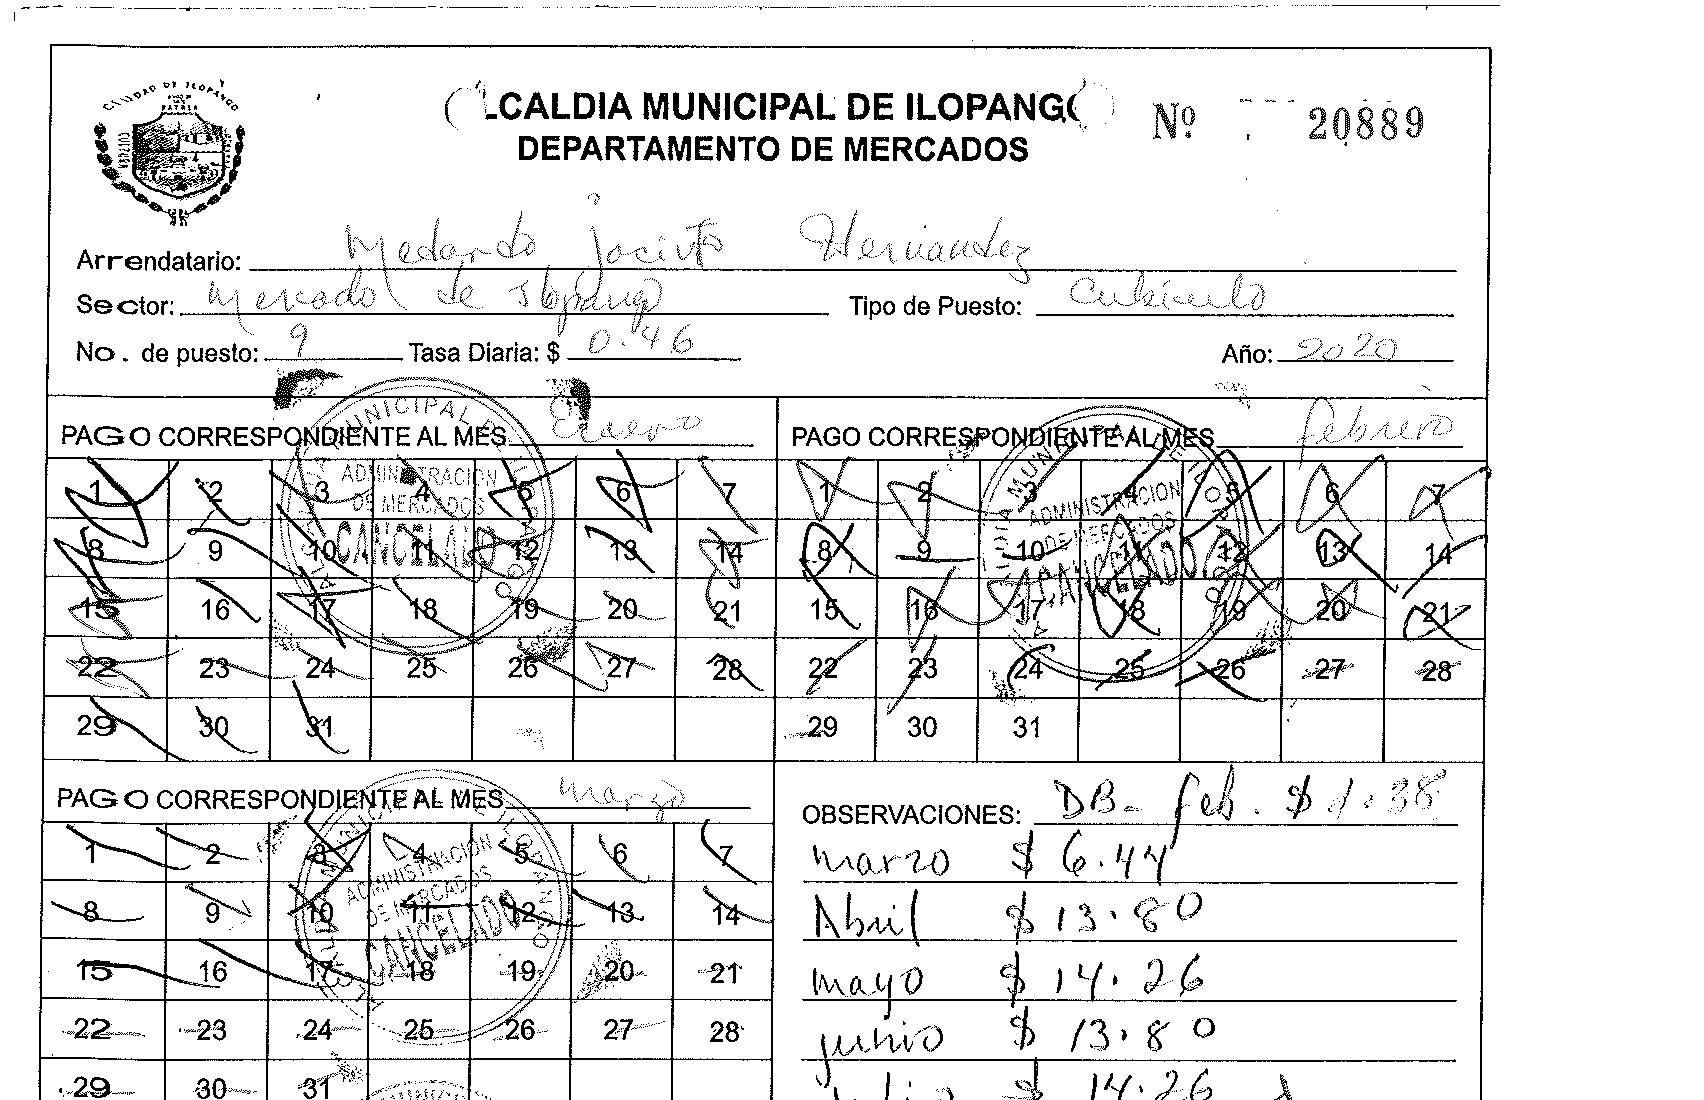 CIUDAD DE ILOPANGO
PATRIA
ALCALDIA MUNICIPAL DE ILOPANGO
DEPARTAMENTO DE MERCADOS
Nº 20889
Arrendatario: Medardo Jacinto Hernandez
Sector: Mercado de Ilopango Tipo de Puesto: Cubiculo
No. de puesto: 9 Tasa Diaria: $ 0.46 Año: 2020
PAGO CORRESPONDIENTE AL MES Enero
1 2 3 4 5 6 7
8 9 10 11 12 13 14
15 16 17 18 19 20 21
22 23 24 25 26 27 28
29 30 31
ADMINISTRACION
DE MERCADOS
CANCELADO
PAGO CORRESPONDIENTE AL MES febrero
1 2 3 4 5 6 7
8 9 10 11 12 13 14
15 16 17 18 19 20 21
22 23 24 25 26 27 28
29 30 31
ADMINISTRACION
DE MERCADOS
CANCELADO
PAGO CORRESPONDIENTE AL MES marzo
1 2 3 4 5 6 7
8 9 10 11 12 13 14
15 16 17 18 19 20 21
22 23 24 25 26 27 28
29 30 31
ADMINISTRACION
DE MERCADOS
CANCELADO
OBSERVACIONES: DB- feb. $ 1.38
marzo $ 6.44
Abril $ 13.80
mayo $ 14.26
junio $ 13.80
julio $ 14.26